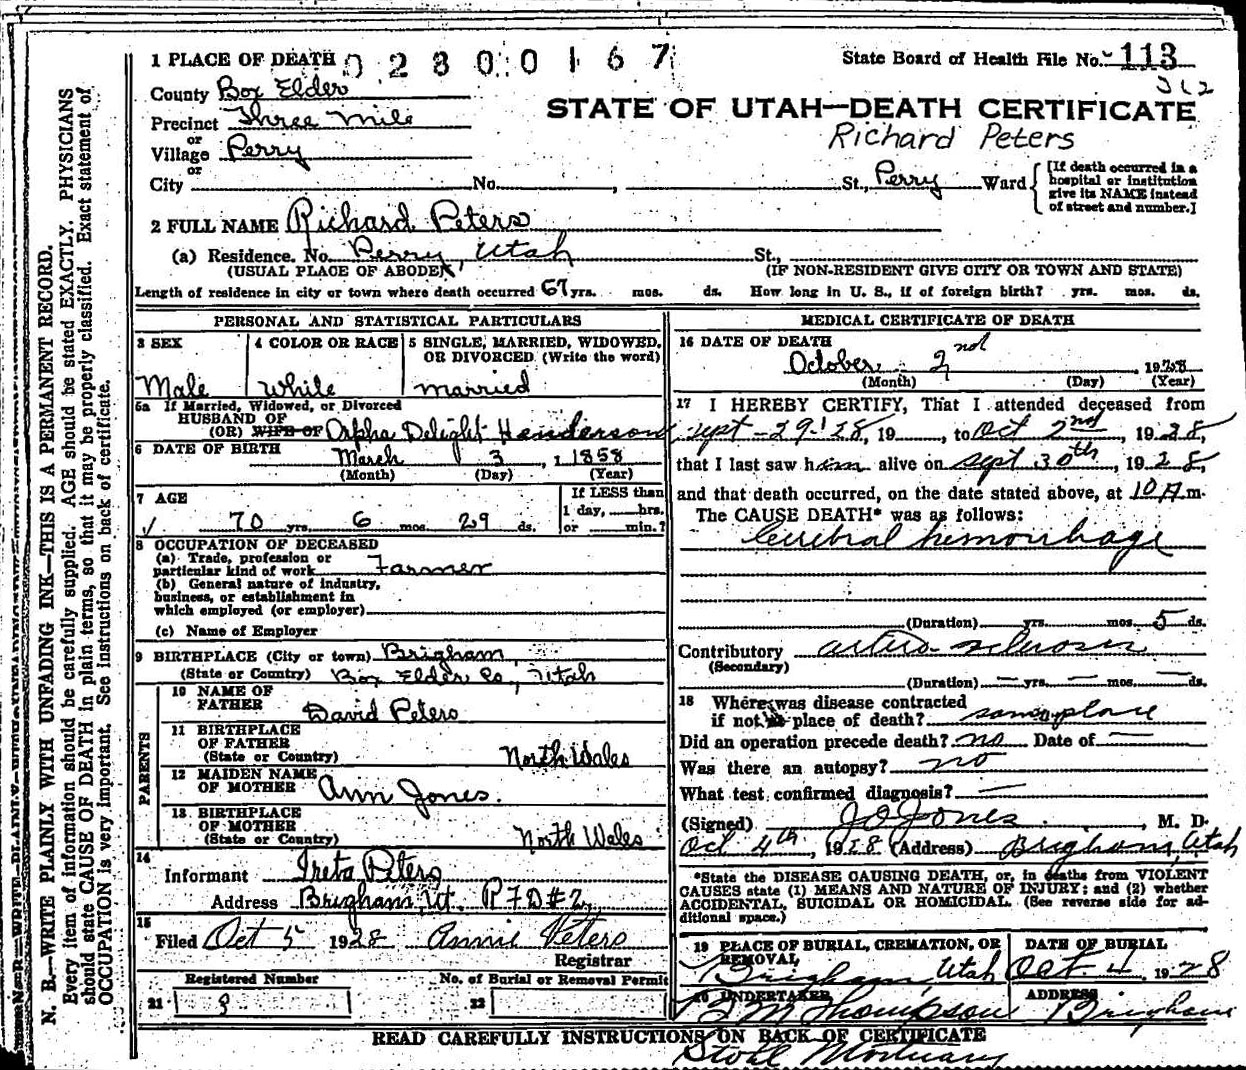 1 PLACE OF DEATH 02300167
State Board of Health File No. 113
312
County Box Elder
STATE OF UTAH—DEATH CERTIFICATE
Precinct Three Mile
Richard Peters
or
Village Perry
or
City No. , St., Perry Ward
[If death occurred in a hospital or institution give its NAME instead of street and number.]
2 FULL NAME Richard Peters
(a) Residence. No. Perry, Utah St.,
(USUAL PLACE OF ABODE) (IF NON-RESIDENT GIVE CITY OR TOWN AND STATE)
Length of residence in city or town where death occurred 67 yrs. mos. ds. How long in U. S., if of foreign birth? yrs. mos. ds.
PERSONAL AND STATISTICAL PARTICULARS
3 SEX 4 COLOR OR RACE 5 SINGLE, MARRIED, WIDOWED,
OR DIVORCED (Write the word)
Male White married
5a If Married, Widowed, or Divorced
HUSBAND OF
(OR) WIFE OF Orpha Delight Henderson
6 DATE OF BIRTH March 3, 1858
(Month) (Day) (Year)
7 AGE
If LESS than
1 day, hrs.
√ 70 yrs. 6 mos. 29 ds. or min.?
8 OCCUPATION OF DECEASED
(a) Trade, profession or
particular kind of work Farmer
(b) General nature of industry,
business, or establishment in
which employed (or employer)
(c) Name of Employer
9 BIRTHPLACE (City or town) Brigham,
(State or Country) Box Elder Co., Utah
PARENTS
10 NAME OF
FATHER David Peters
11 BIRTHPLACE
OF FATHER
(State or Country) North Wales
12 MAIDEN NAME
OF MOTHER Ann Jones.
13 BIRTHPLACE
OF MOTHER
(State or Country) North Wales
14
Informant Ireta Peters
Address Brigham, Ut. RFD#2
15
Filed Oct 5 1928 Annie Peters
Registrar
Registered Number No. of Burial or Removal Permit
21 9 22
MEDICAL CERTIFICATE OF DEATH
16 DATE OF DEATH
October 2nd, 1928
(Month) (Day) (Year)
17 I HEREBY CERTIFY, That I attended deceased from
sept - 29 '28, 19 , to Oct 2nd, 1928,
that I last saw him alive on sept 30th, 1928,
and that death occurred, on the date stated above, at 10 A m.
The CAUSE DEATH* was as follows:
Cerebral hemorrhage
(Duration) yrs. mos. 5 ds.
Contributory arterio-sclerosis
(Secondary)
(Duration) — yrs. — mos. — ds.
18 Where was disease contracted
if not at place of death? same place
Did an operation precede death? no Date of —
Was there an autopsy? no
What test confirmed diagnosis? —
(Signed) J D Jones, M. D.
Oct 4th, 1928 (Address) Brigham, Utah
*State the DISEASE CAUSING DEATH, or, in deaths from VIOLENT
CAUSES state (1) MEANS AND NATURE OF INJURY; and (2) whether
ACCIDENTAL, SUICIDAL OR HOMICIDAL. (See reverse side for ad-
ditional space.)
19 PLACE OF BURIAL, CREMATION, OR DATE OF BURIAL
REMOVAL
Brigham, Utah Oct 4 1928
20 UNDERTAKER ADDRESS
Thompson Brigham
READ CAREFULLY INSTRUCTIONS ON BACK OF CERTIFICATE
Stohl Mortuary
N. B.—WRITE PLAINLY WITH UNFADING INK—THIS IS A PERMANENT RECORD.
Every item of information should be carefully supplied. AGE should be stated EXACTLY. PHYSICIANS
should state CAUSE OF DEATH in plain terms, so that it may be properly classified. Exact statement of
OCCUPATION is very important. See instructions on back of certificate.